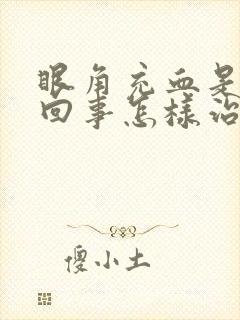 眼角充血是
回事怎样治
傻小土